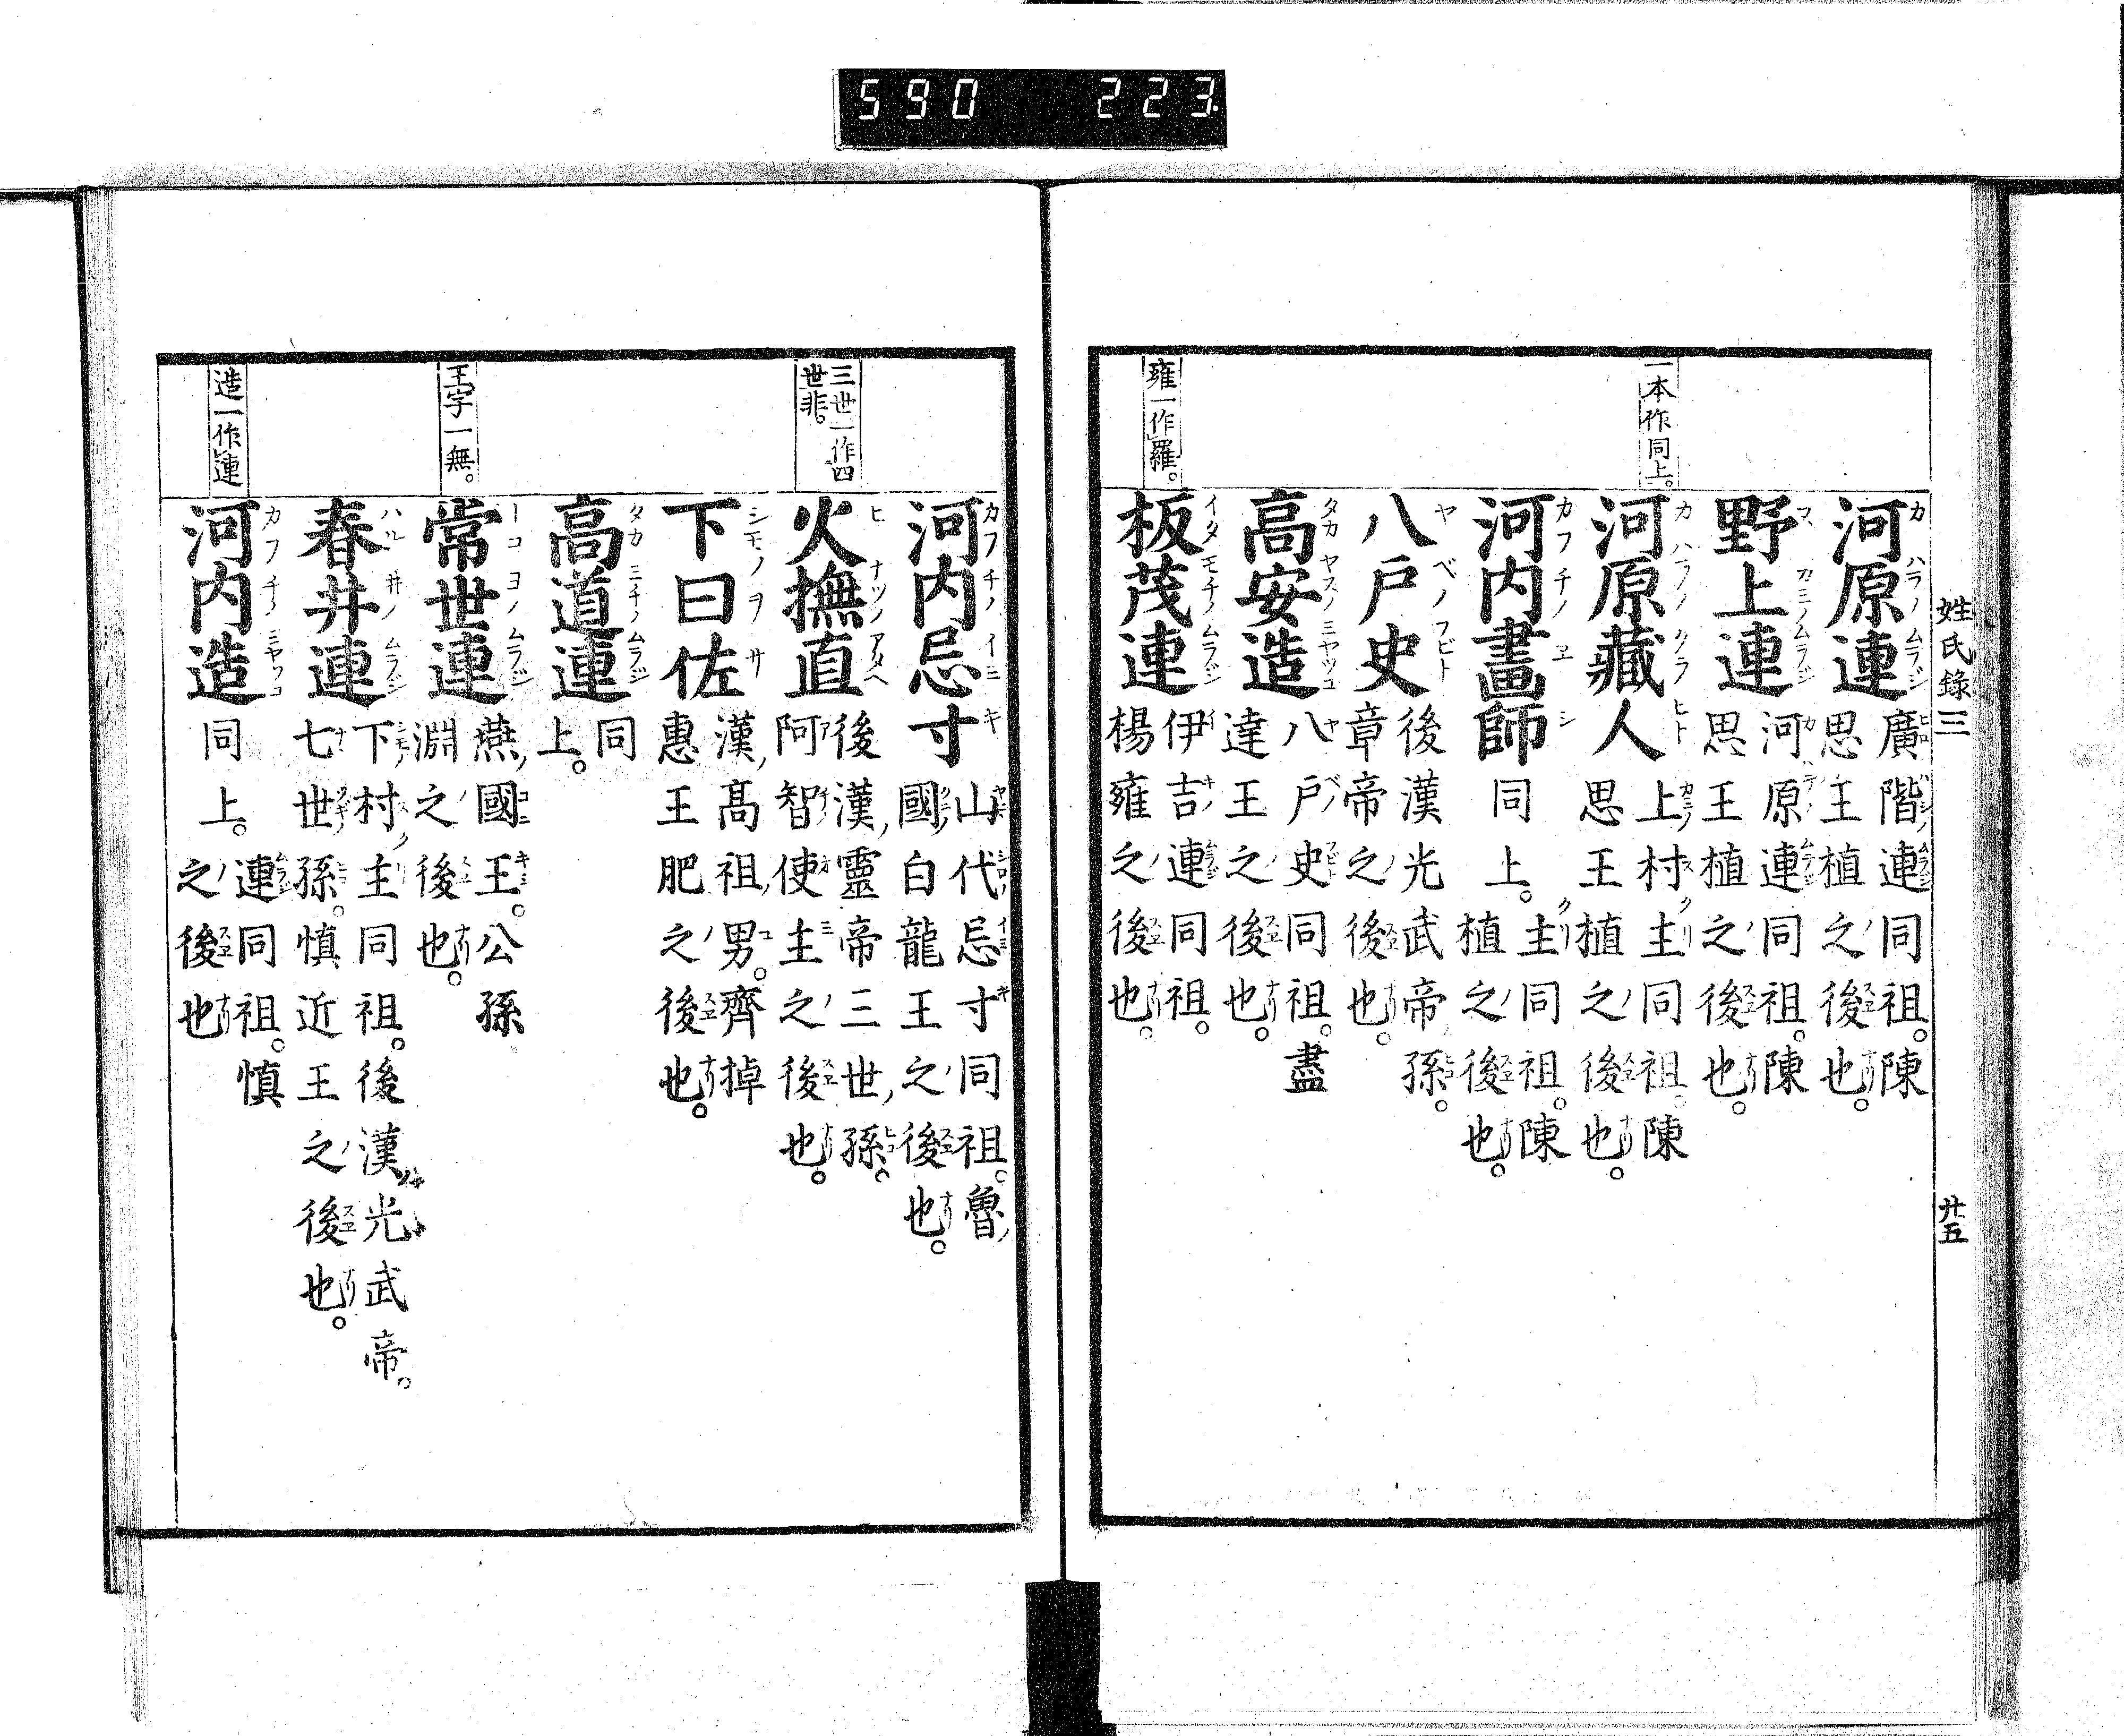 590 223
姓氏錄三 廿五
一本作同上。
雍一作羅。
河原連 廣階連同祖。陳
思王植之後也。
野上連 河原連同祖。陳
思王植之後也。
河原藏人 上村主同祖。陳
思王植之後也。
河内畫師 同上。主同祖。陳
植之後也。
八戸史 後漢光武帝孫。
章帝之後也。
高安造 八戸史同祖。盡
達王之後也。
板茂連 伊吉連同祖。
楊雍之後也。
三世一作四
世非。
王字一無。
造一作連
河内忌寸 山代忌寸同祖。魯
國白龍王之後也。
火撫直 後漢靈帝三世孫。
阿智使主之後也。
下曰佐 漢高祖男。齊悼
惠王肥之後也。
高道連 同
上。
常世連 燕國王。公孫
淵之後也。
春井連 下村主同祖。後漢光武帝。
七世孫。慎近王之後也。
河内造 同上。連同祖。慎
之後也